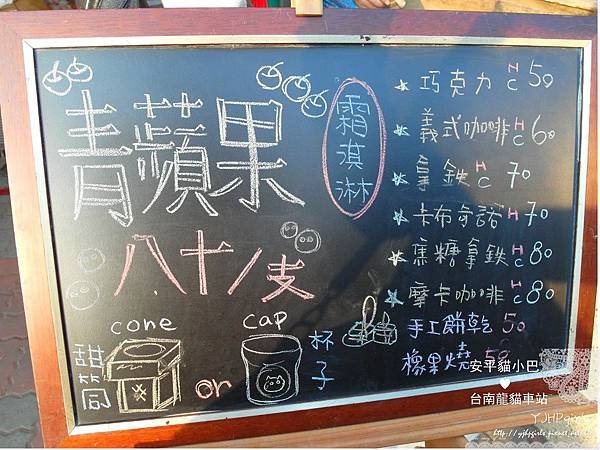 青蘋果
霜淇淋
八十/支
cone or cap
甜筒
杯子
巧克力 H C 50
義式咖啡 H C 60
拿鐵 H C 70
卡布奇諾 H C 70
焦糖拿鐵 H C 80
摩卡咖啡 H C 80
手工餅乾 50
橡果燒 50
安平貓小巴
台南龍貓車站
YJHPgirls
http://yjhpgirls.pixnet.net